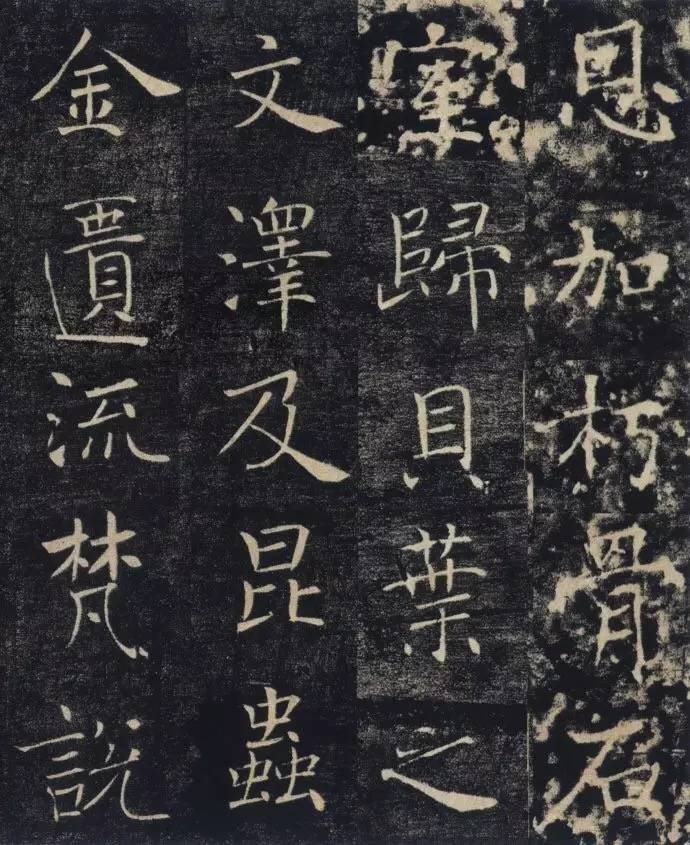 恩加朽骨石
室歸貝葉之
文澤及昆蟲
金匱流梵說